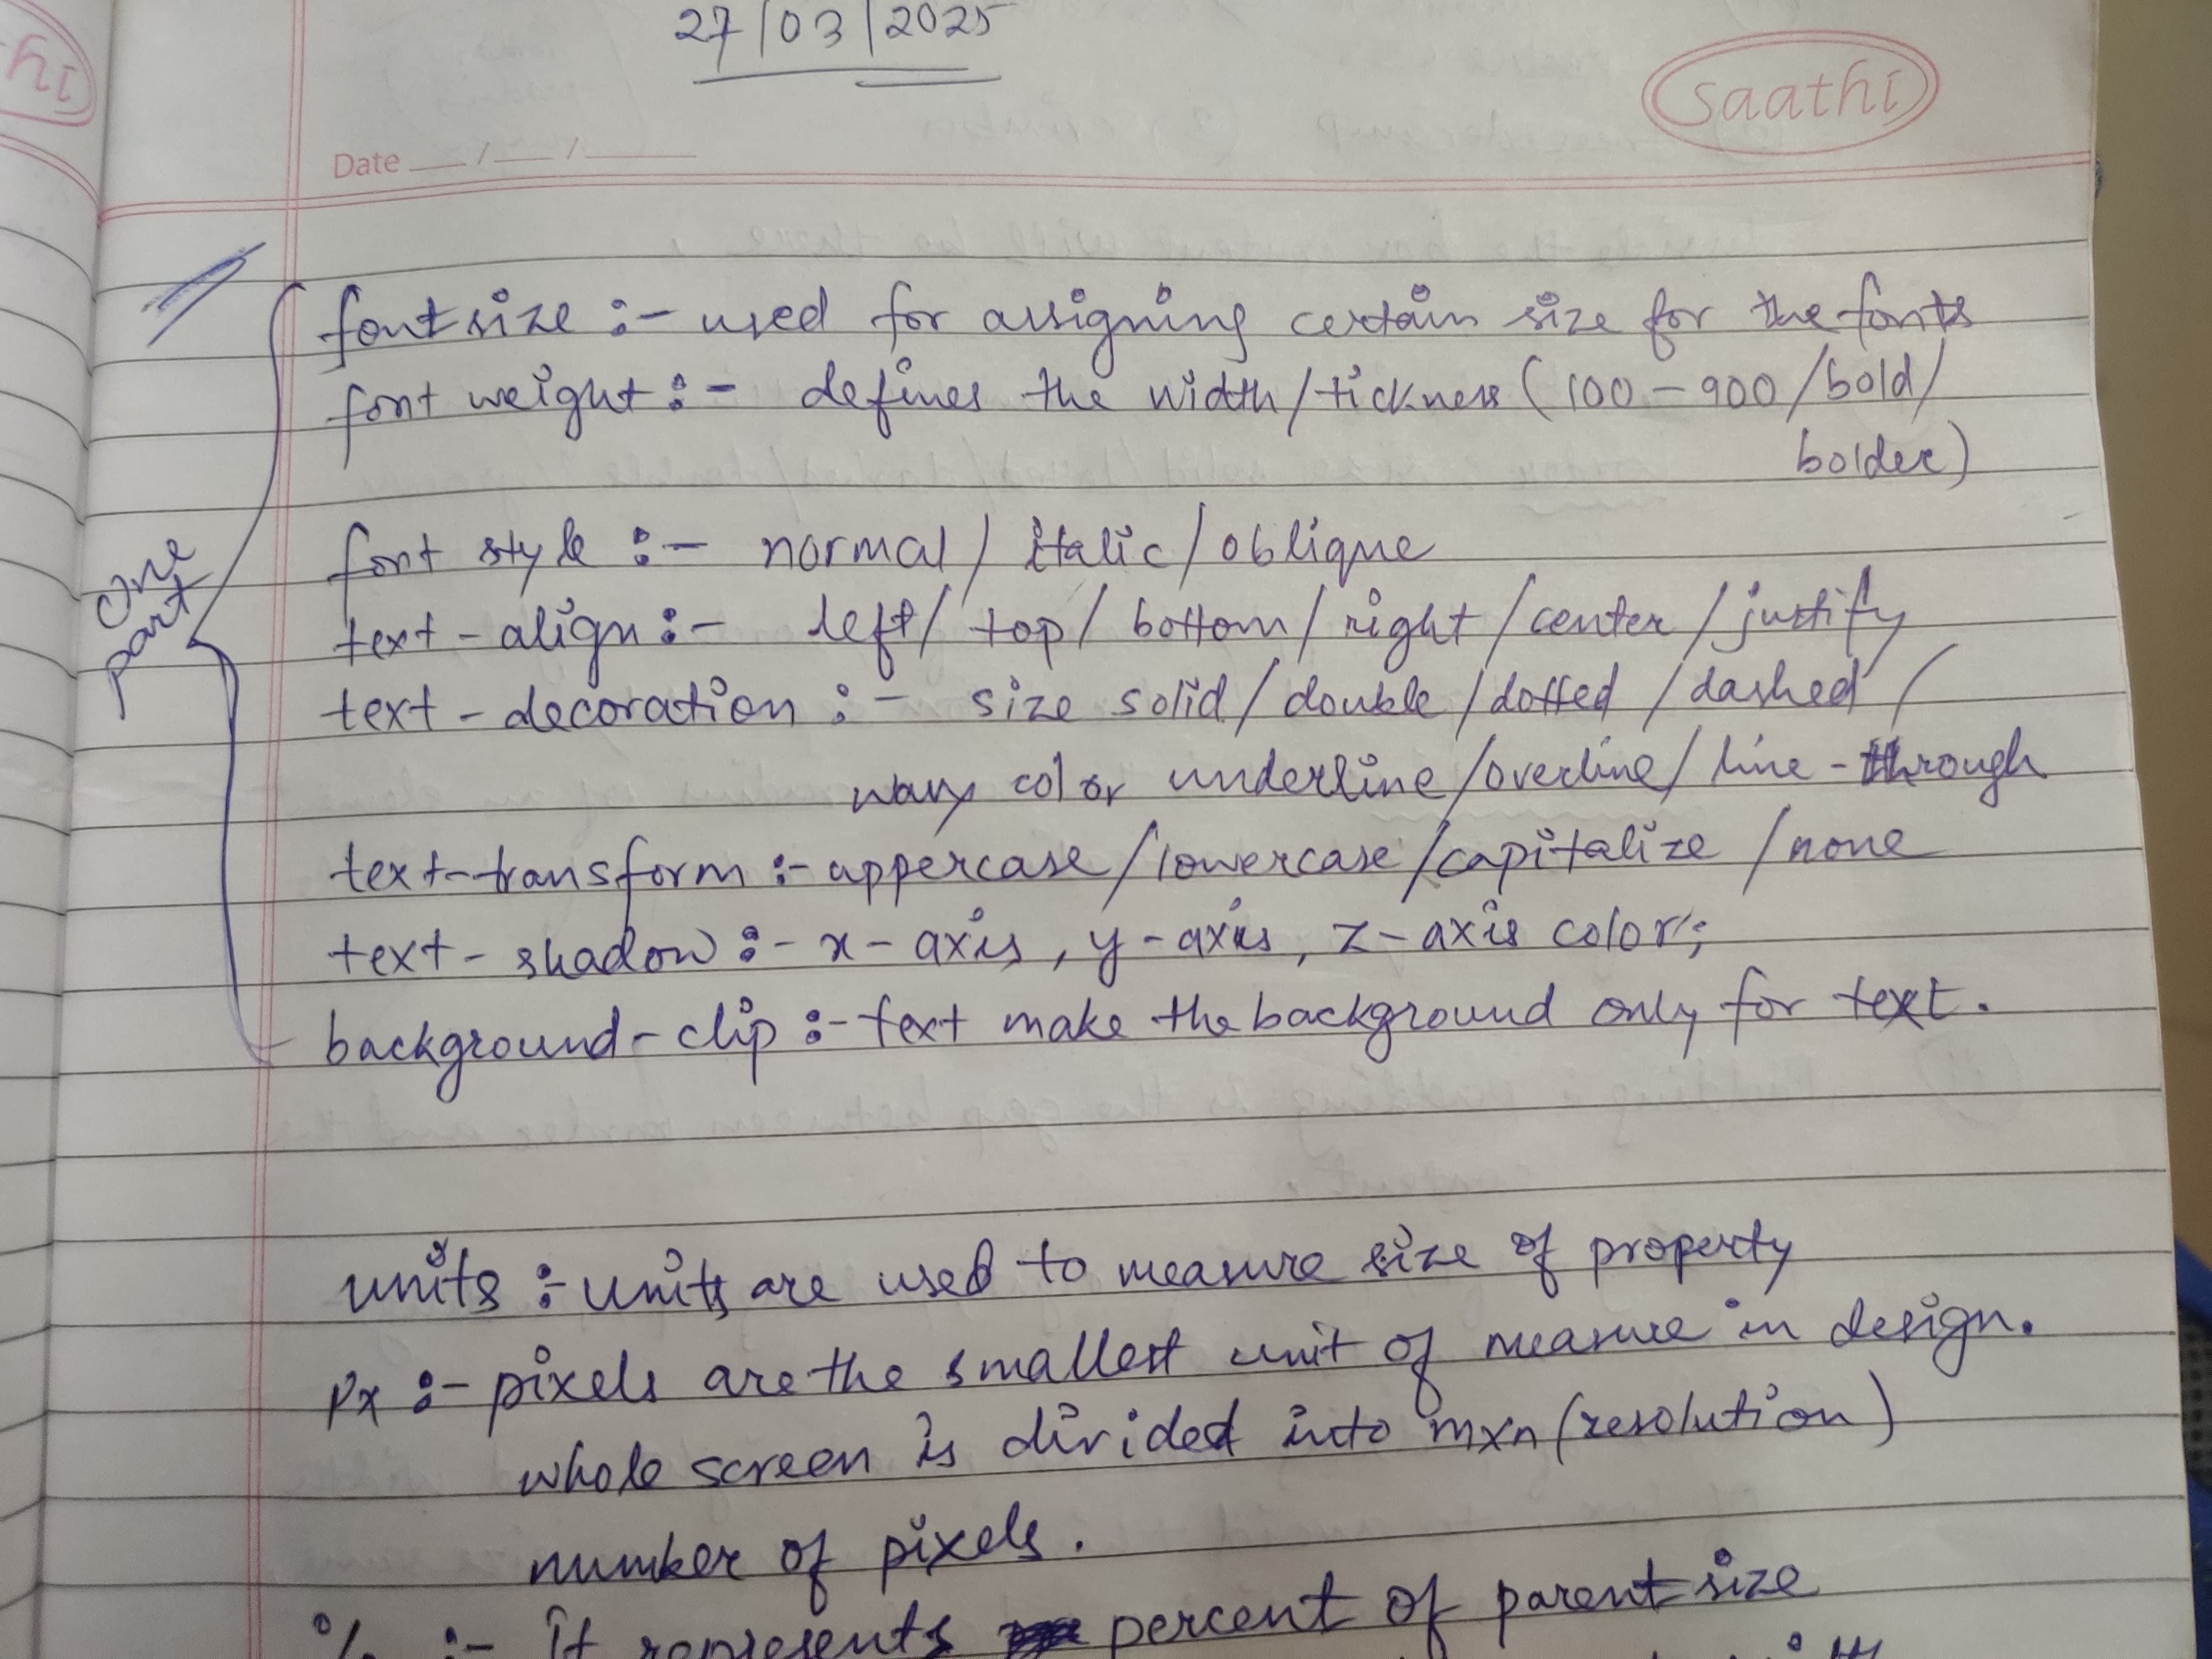 27/03/2025
saathi
hi
Date __/__/____
font size :- used for assigning certain size for the fonts
font weight :- defines the width/tickness (100-900/bold/
bolder)
font style :- normal/italic/oblique
text-align :- left/top/bottom/right/center/justify
text-decoration :- size solid/double/dotted/dashed/
wavy color underline/overline/line-through
text-transform :- uppercase/lowercase/capitalize/none
text-shadow :- x-axis, y-axis, z-axis color;
background-clip :- text make the background only for text.
one
part
units :- units are used to measure size of property
px :- pixels are the smallest unit of measure in design.
whole screen is divided into mxn (resolution)
number of pixels.
% :- It represents percent of parent size